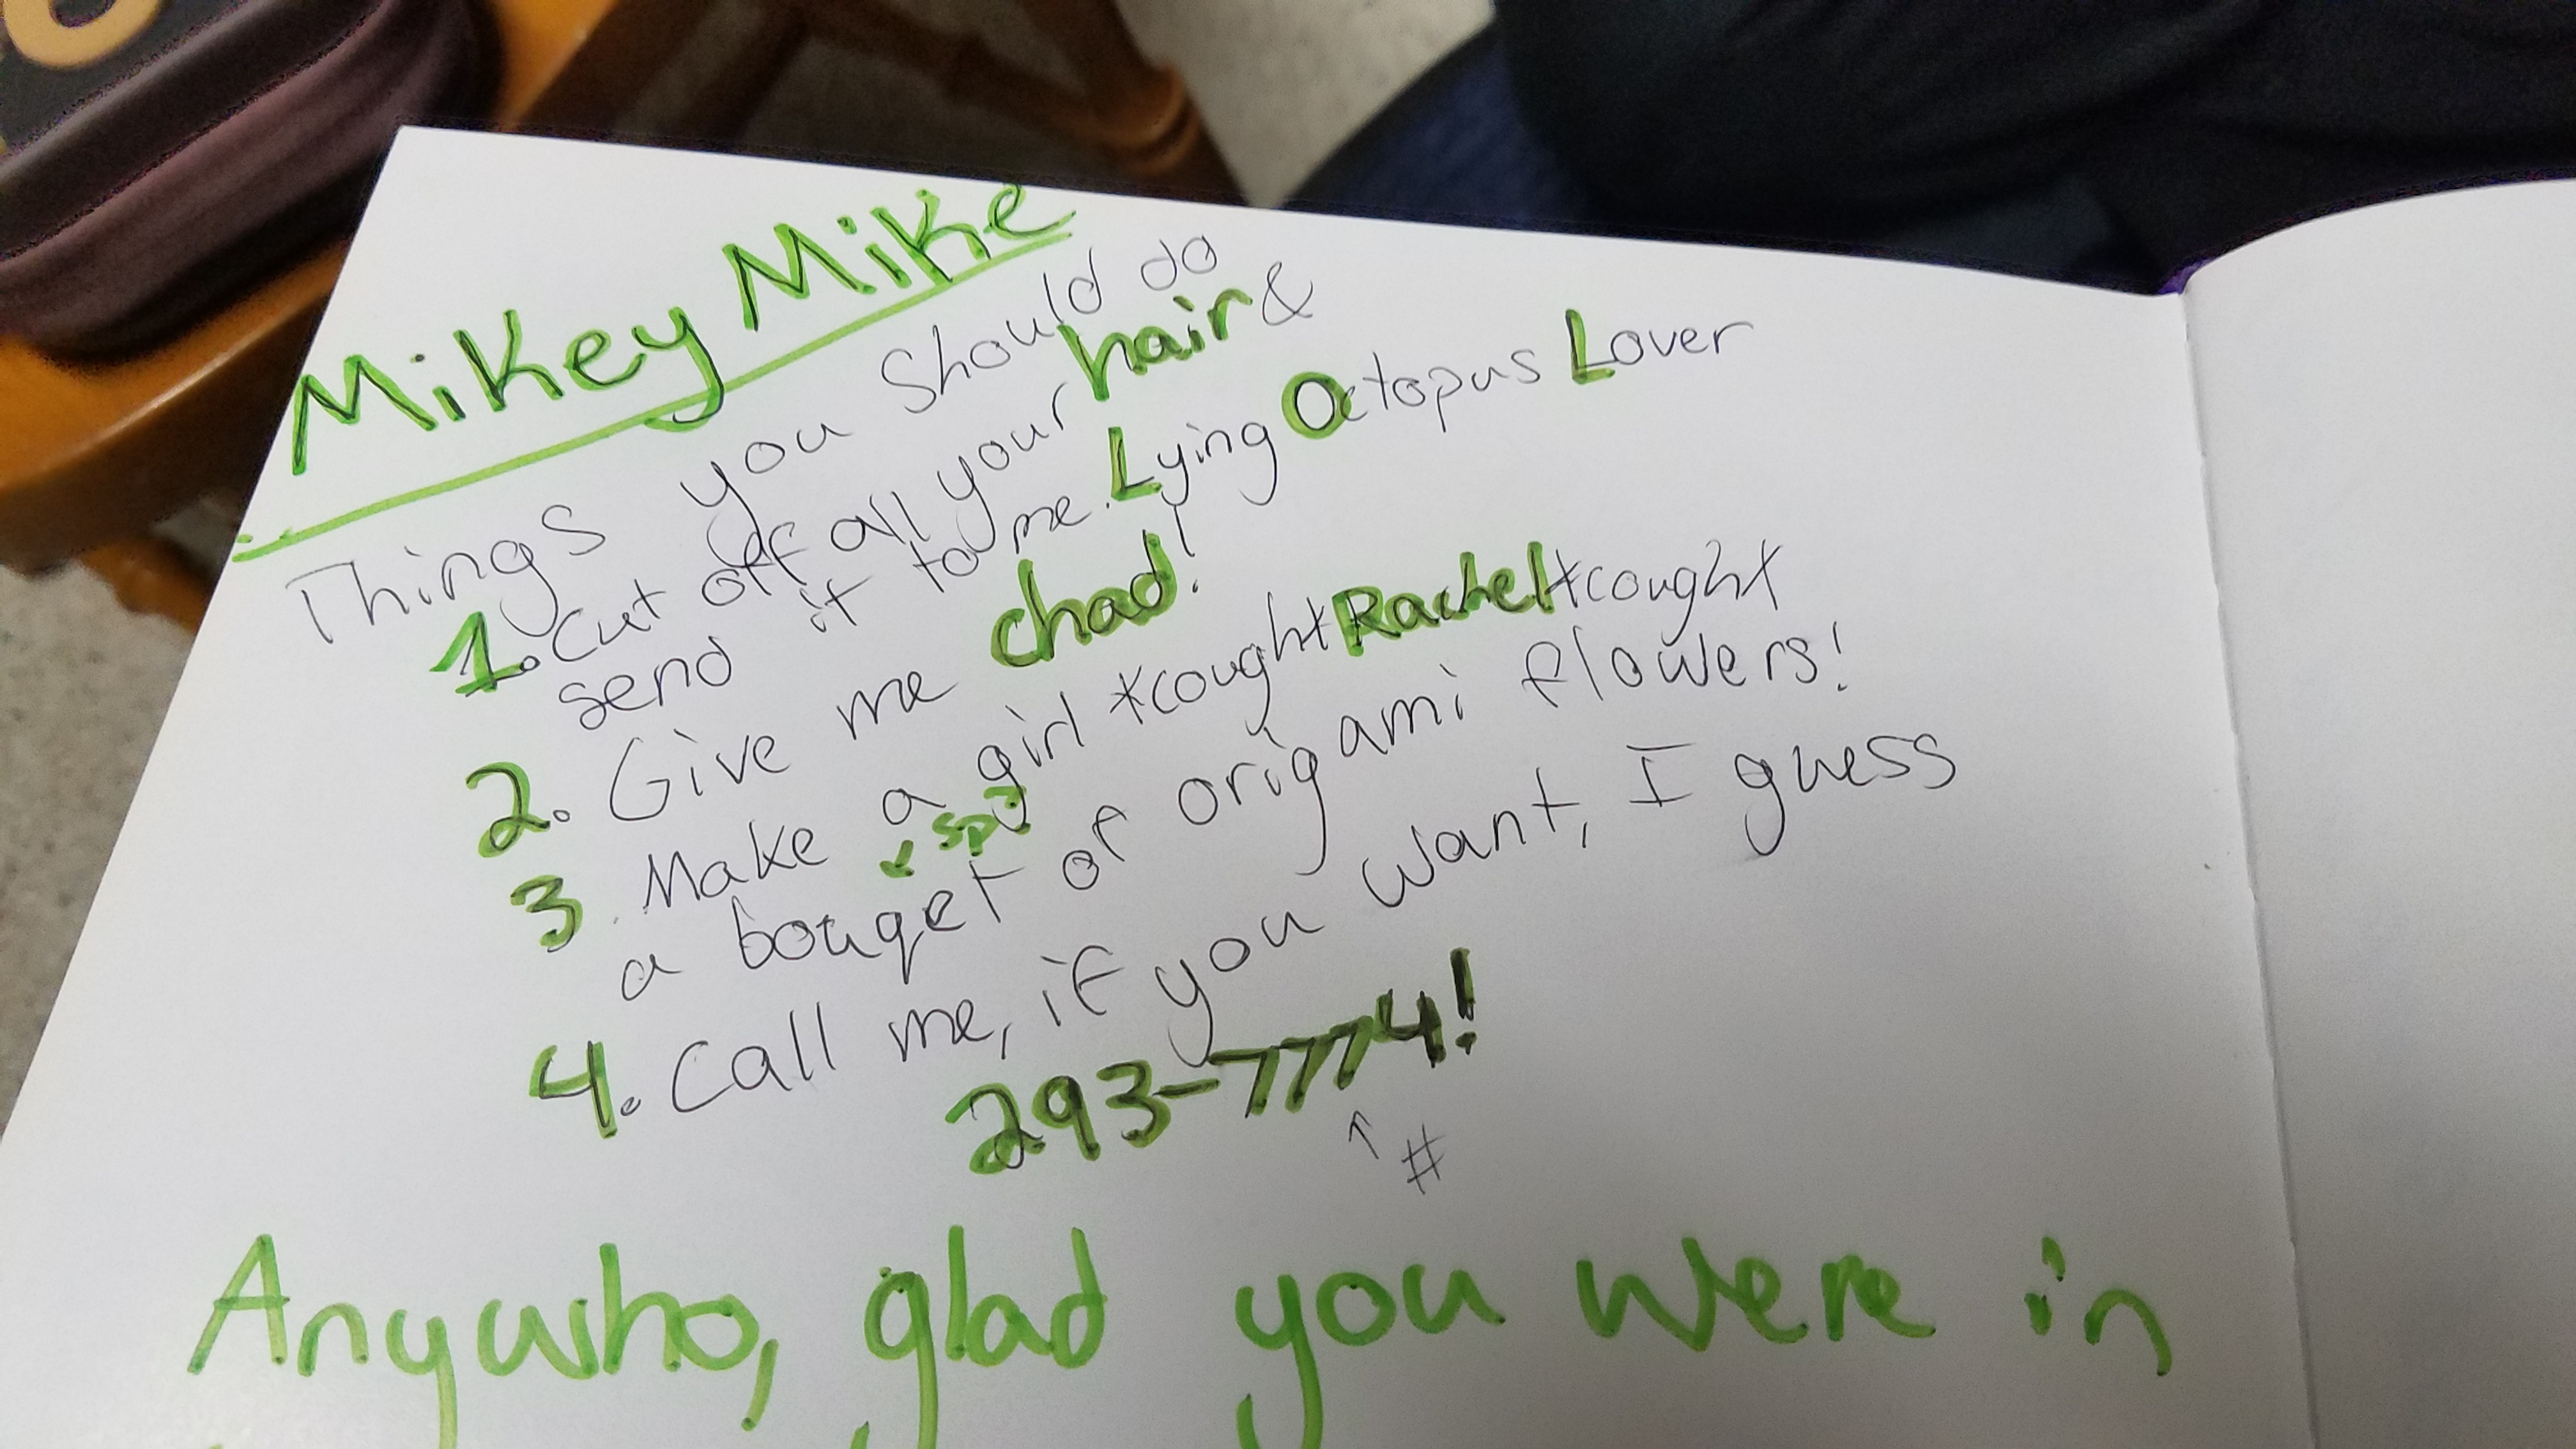 Mikey Mike
Things you should do
1. Cut off all your hair &
send it to me. Lying Octopus Lover
2. Give me chad!
3. Make a girl *cought* Rachel *cought*
sp?
a bouqet of origami flowers!
4. Call me, if you want, I guess
293-7774!
↑ #
Anywho, glad you were in